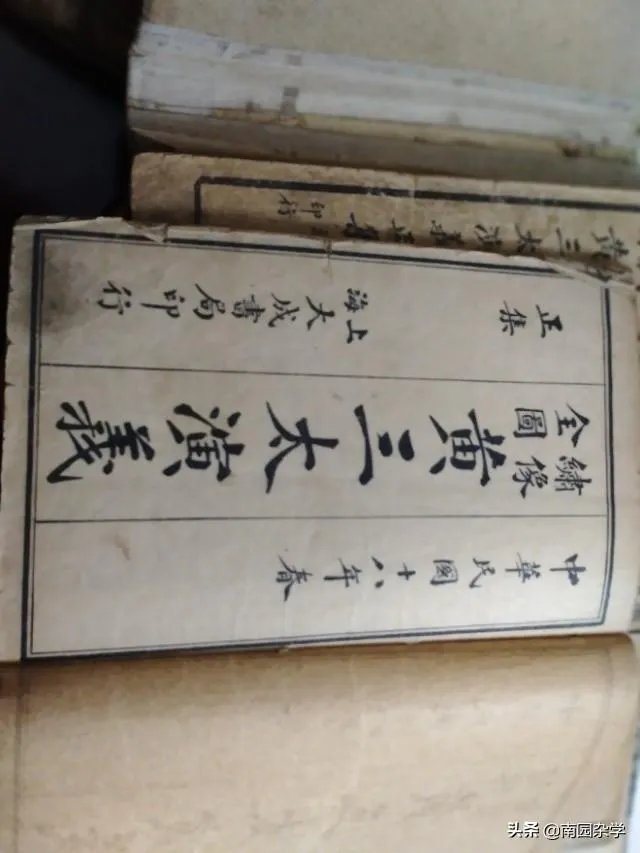 中華民國十八年春
繡像
全圖
黄三太演義
正集
上海
大成書局印行
黄三太演義
印行
头条 @南园杂学